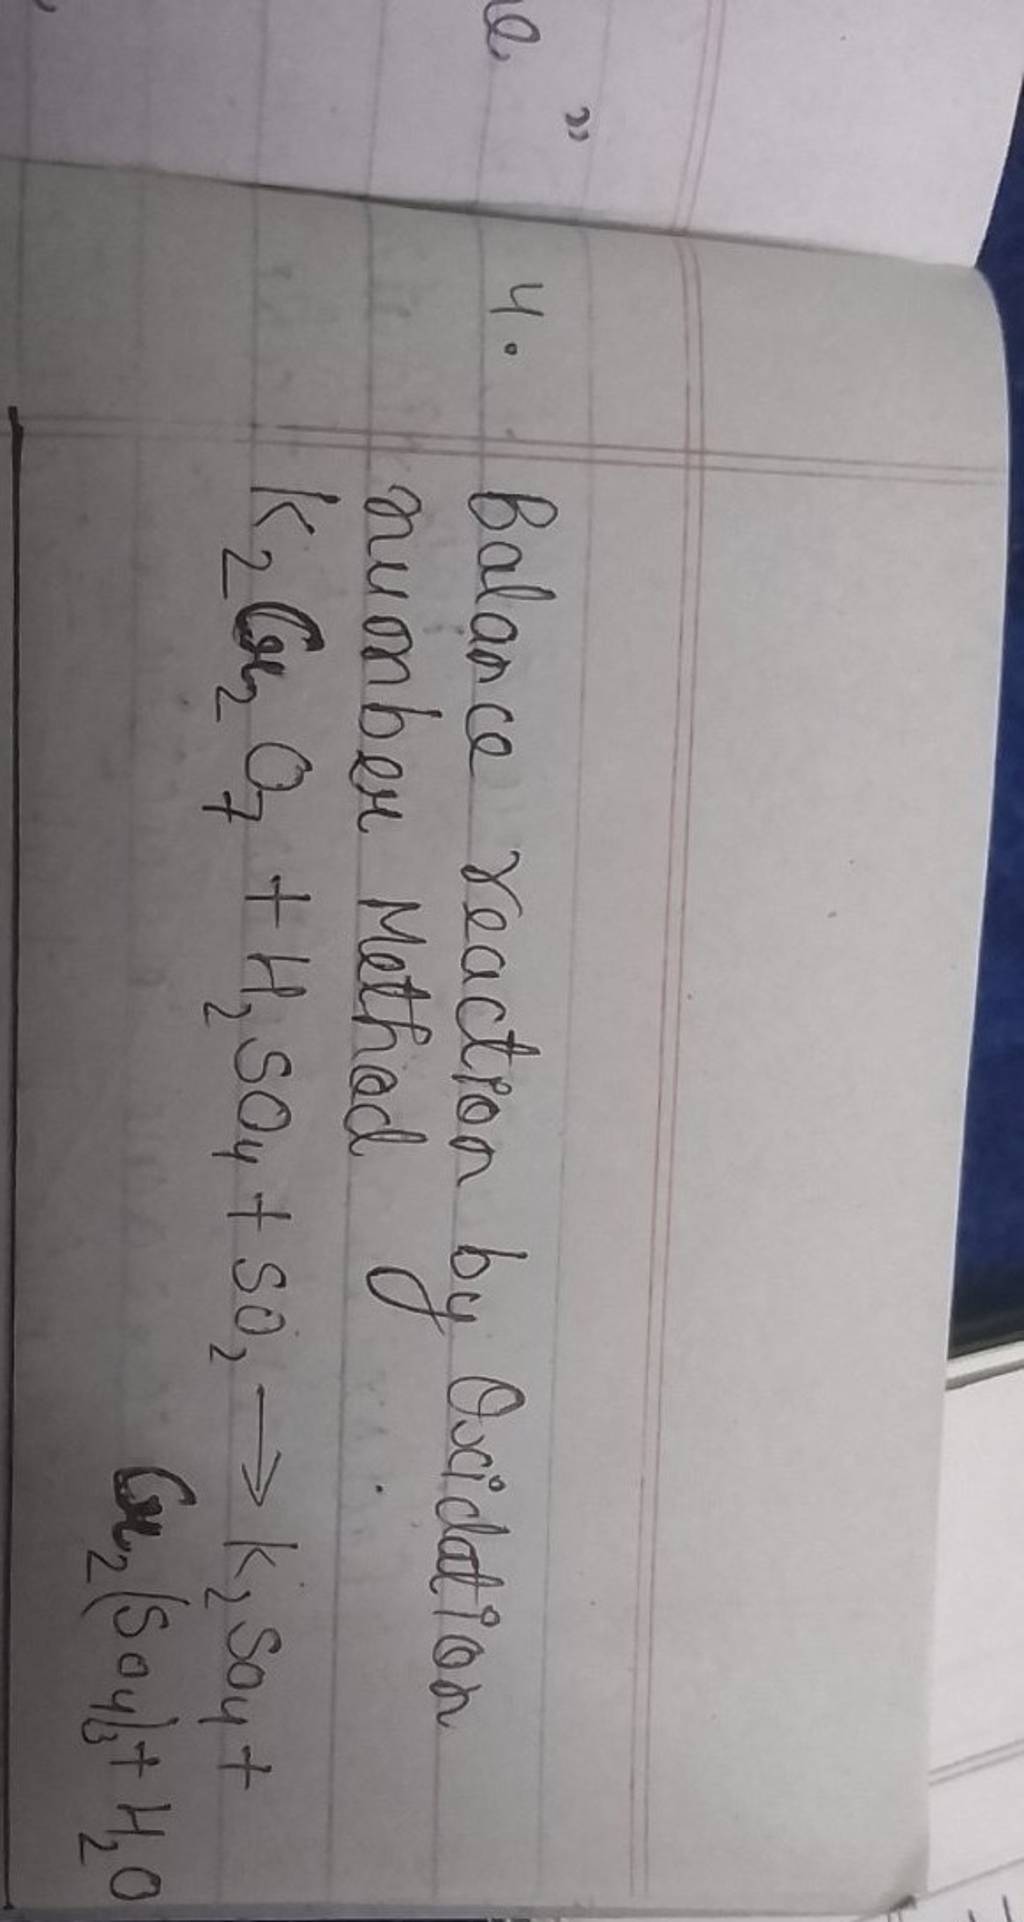 4. Balance reaction by Oxidation
number Method
K₂Cr₂O₇ + H₂SO₄ + SO₂ → K₂SO₄ +
Cr₂(SO₄)₃ + H₂O